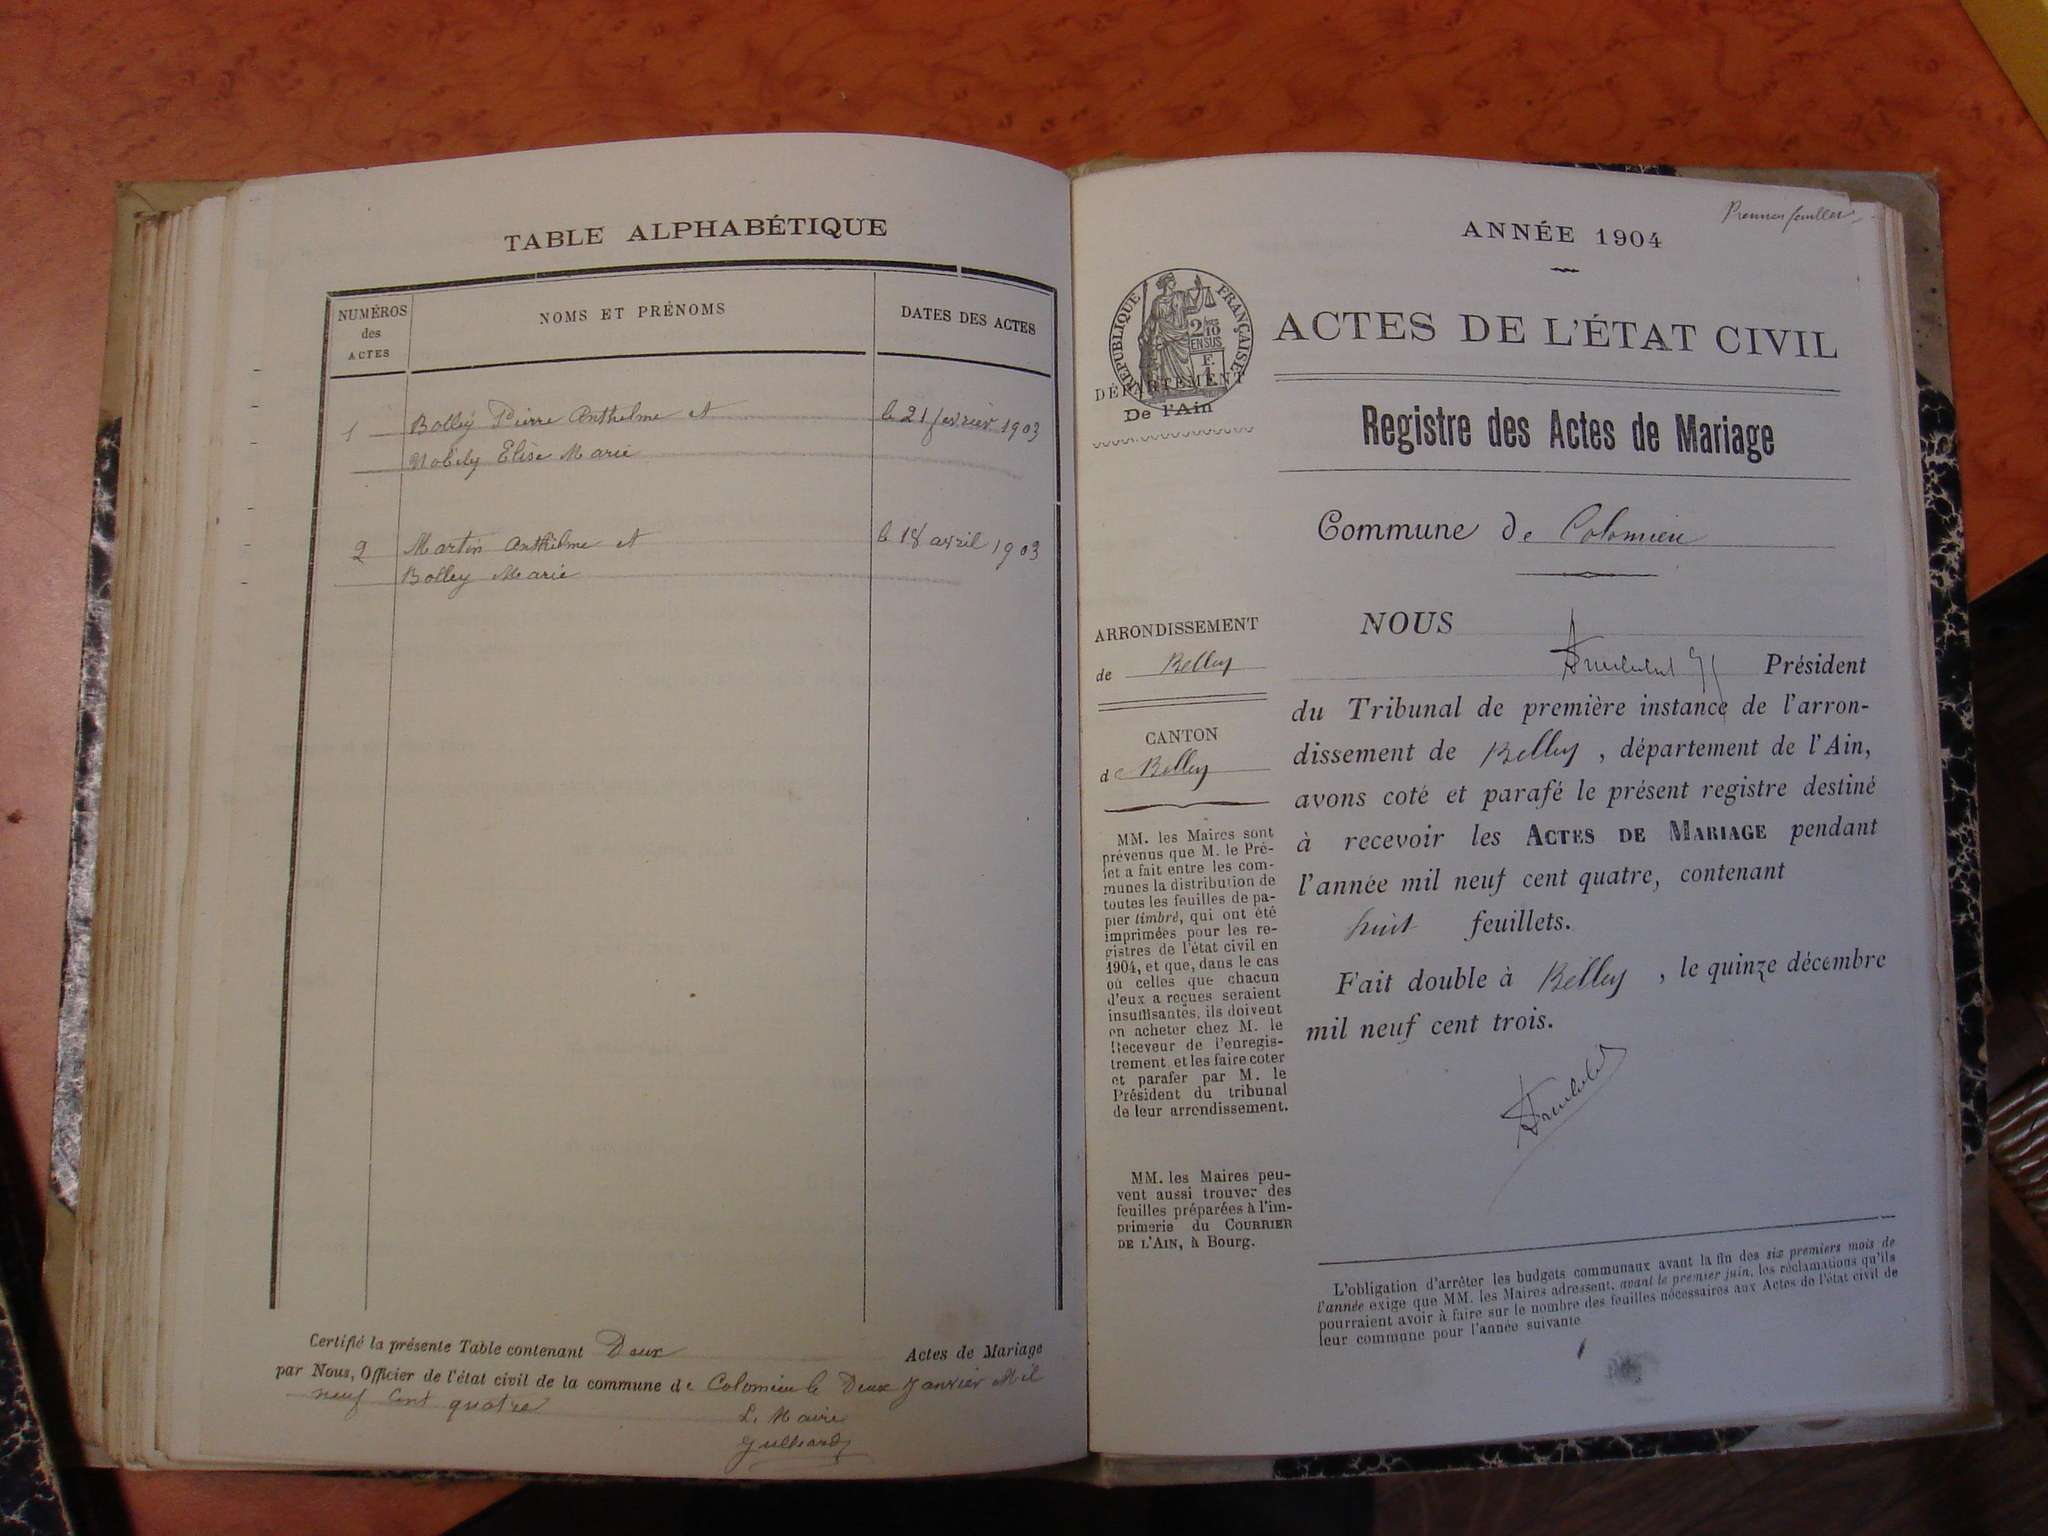 TABLE ALPHABÉTIQUE
NUMÉROS
des
ACTES
NOMS ET PRÉNOMS
DATES DES ACTES
1 Bolley Pierre Anthelme et le 21 fevrier 1903
Elise Marie
2 Martin Anthelme et le 18 avril 1903
Bolley Marie
Certifié la présente Table contenant Deux Actes de Mariage
par Nous, Officier de l'état civil de la commune de Colomieu le Deux Janvier Mil
neuf cent quatre
Le Maire
Premier feuillet
ANNÉE 1904
RÉPUBLIQUE FRANÇAISE
2/10 EN SUS
F.
1
DÉPARTEMENT
De l'Ain
ACTES DE L'ÉTAT CIVIL
Registre des Actes de Mariage
Commune de Colomieu
ARRONDISSEMENT
de Belley
CANTON
de Belley
MM. les Maires sont
prévenus que M. le Pré-
fet a fait entre les com-
munes la distribution de
toutes les feuilles de pa-
pier timbré, qui ont été
imprimées pour les re-
gistres de l'état civil en
1904, et que, dans le cas
où celles que chacun
d'eux a reçues seraient
insuffisantes, ils doivent
en acheter chez M. le
Receveur de l'enregis-
trement, et les faire coter
et parafer par M. le
Président du tribunal
de leur arrondissement.
MM. les Maires peu-
vent aussi trouver des
feuilles préparées à l'im-
primerie du COURRIER
DE L'AIN, à Bourg.
NOUS
Président
du Tribunal de première instance de l'arron-
dissement de Belley, département de l'Ain,
avons coté et parafé le présent registre destiné
à recevoir les ACTES DE MARIAGE pendant
l'année mil neuf cent quatre, contenant
huit feuillets.
Fait double à Belley, le quinze décembre
mil neuf cent trois.
L'obligation d'arrêter les budgets communaux avant la fin des six premiers mois de
l'année exige que MM. les Maires adressent, avant le premier juin, les réclamations qu'ils
pourraient avoir à faire sur le nombre des feuilles nécessaires aux Actes de l'état civil de
leur commune pour l'année suivante